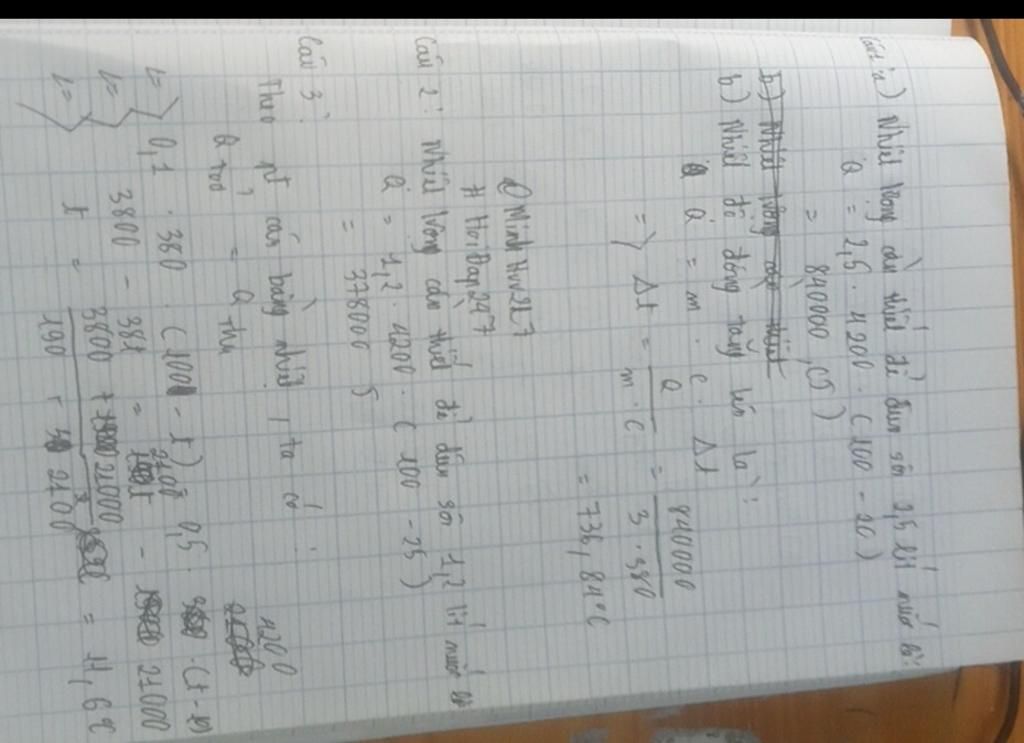 Câu 1: a) Nhiệt lượng cần thiết để đun sôi 2,5 lít nước là:
Q = 2,5 . 4200 . (100 - 20)
= 840000 (J)
b) Nhiệt lượng cần thiết
b) Nhiệt độ đồng tăng lên là:
Q = m . c . Δt
=> Δt = Q / m . C = 840000 / 3 . 380
= 736,84°C
@MinhHuy317
# HoiDap247
Câu 2: Nhiệt lượng cần thiết để đun sôi 1,2 lít nước là
Q = 1,2 . 4200 . (100 - 25)
= 378000 J
Câu 3:
Theo pt cân bằng nhiệt, ta có:
Q toả = Q thu
4200
<=> 0,1 . 380 . (100 - t) = 0,5 . (t -
<=> 3800 - 38t = 2100 - 21000
<=> t =